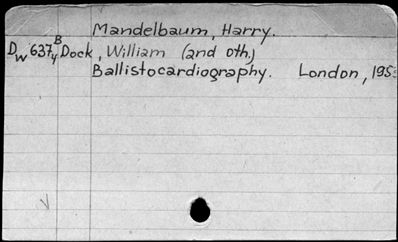 Mandelbaum, Harry.
Dw 637 B4 Dock, William (and oth.)
Ballistocardiography. London, 195